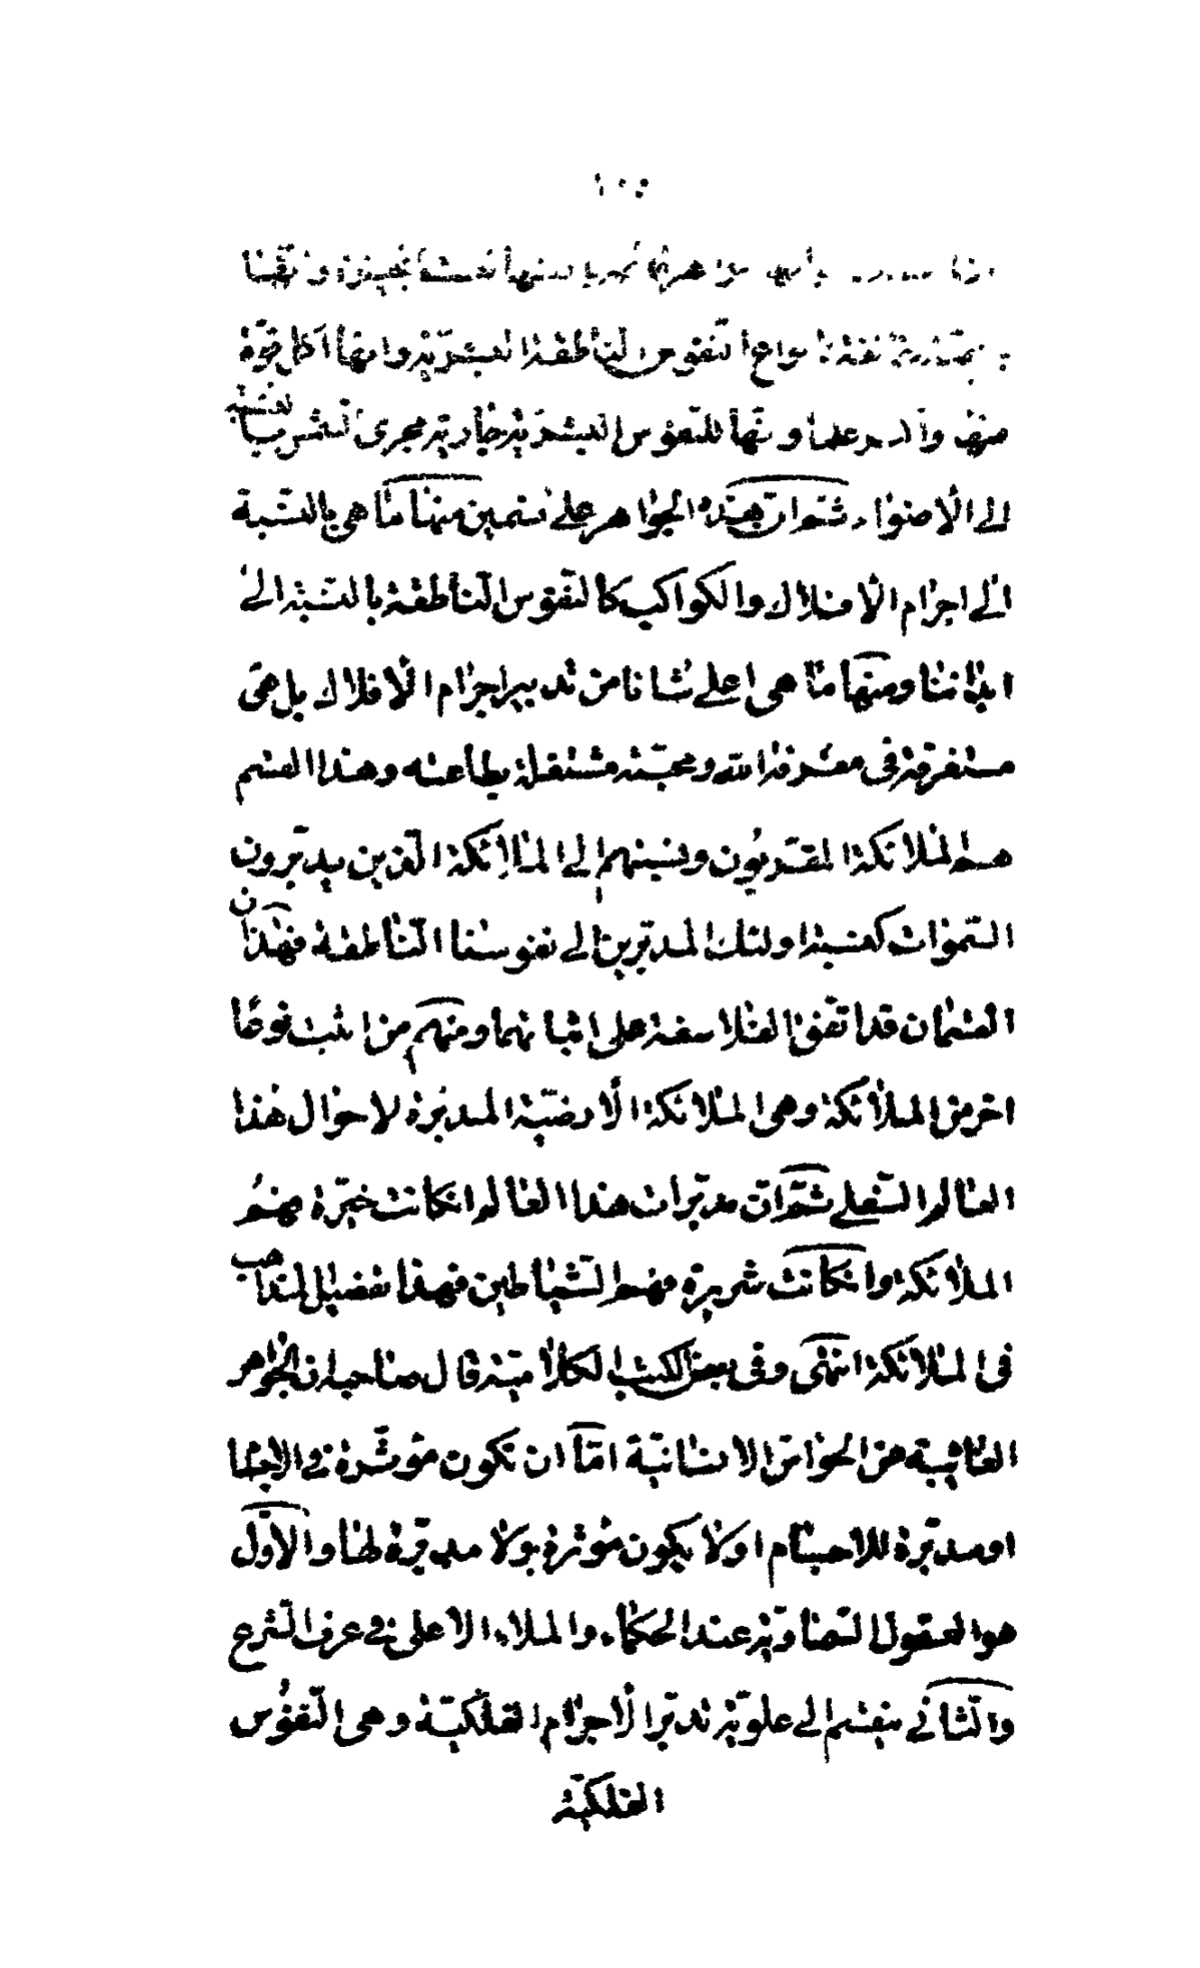 بأنفسها ليست بمتحيزة وانها
بالنفوس الناطقة البشرية وانها اكمل قوة
منها واكثر علما وانها للنفوس البشرية جارية مجرى الشمس بالنسبة
الى الاضواء ثم ان هذه الجواهر على قسمين منها ما هى بالنسبة
الى اجرام الافلاك والكواكب كالنفوس الناطقة بالنسبة الى
ابداننا ومنها ما هى اعلى شانا من تدبير اجرام الافلاك بل هى
مستغرقة فى معرفة الله ومحبته مشتغلة بطاعته وهذا القسم
هم الملائكة المقربون ونسبتهم الى الملائكة الذين يدبرون
السموات كنسبة اولئك المدبرين الى نفوسنا الناطقة فهذان
القسمان قد اتفق الفلاسفة على اثباتهما ومنهم من اثبت نوعا
اخر من الملائكة وهى الملائكة الارضية المدبرة لاحوال هذا
العالم السفلى ثم ان مدبرات هذا العالم انكانت خيرة فهم
الملائكة وانكانت شريرة فهم الشياطين فهذا تفصيل المذاهب
فى الملائكة انتهى وفى بعض الكتب الكلامية قال صاحبه ان الجواهر
الغائبة عن الحواس الانسانية اما ان تكون مؤثرة فى الاجسام
او مدبرة للاجسام اولا يكون مؤثرة ولا مدبرة لها والاول
هو العقول السماوية عند الحكماء والملاء الاعلى فى عرف الشرع
والثانى ينقسم الى علوية تدبر الاجرام الفلكية وهى النفوس
الفلكية